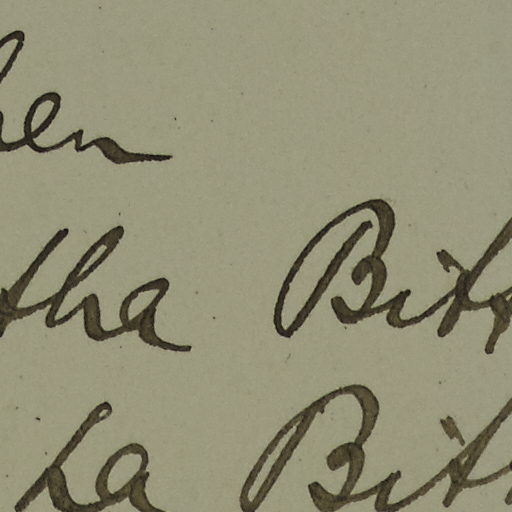 hen
tha Bitt
ha Bit